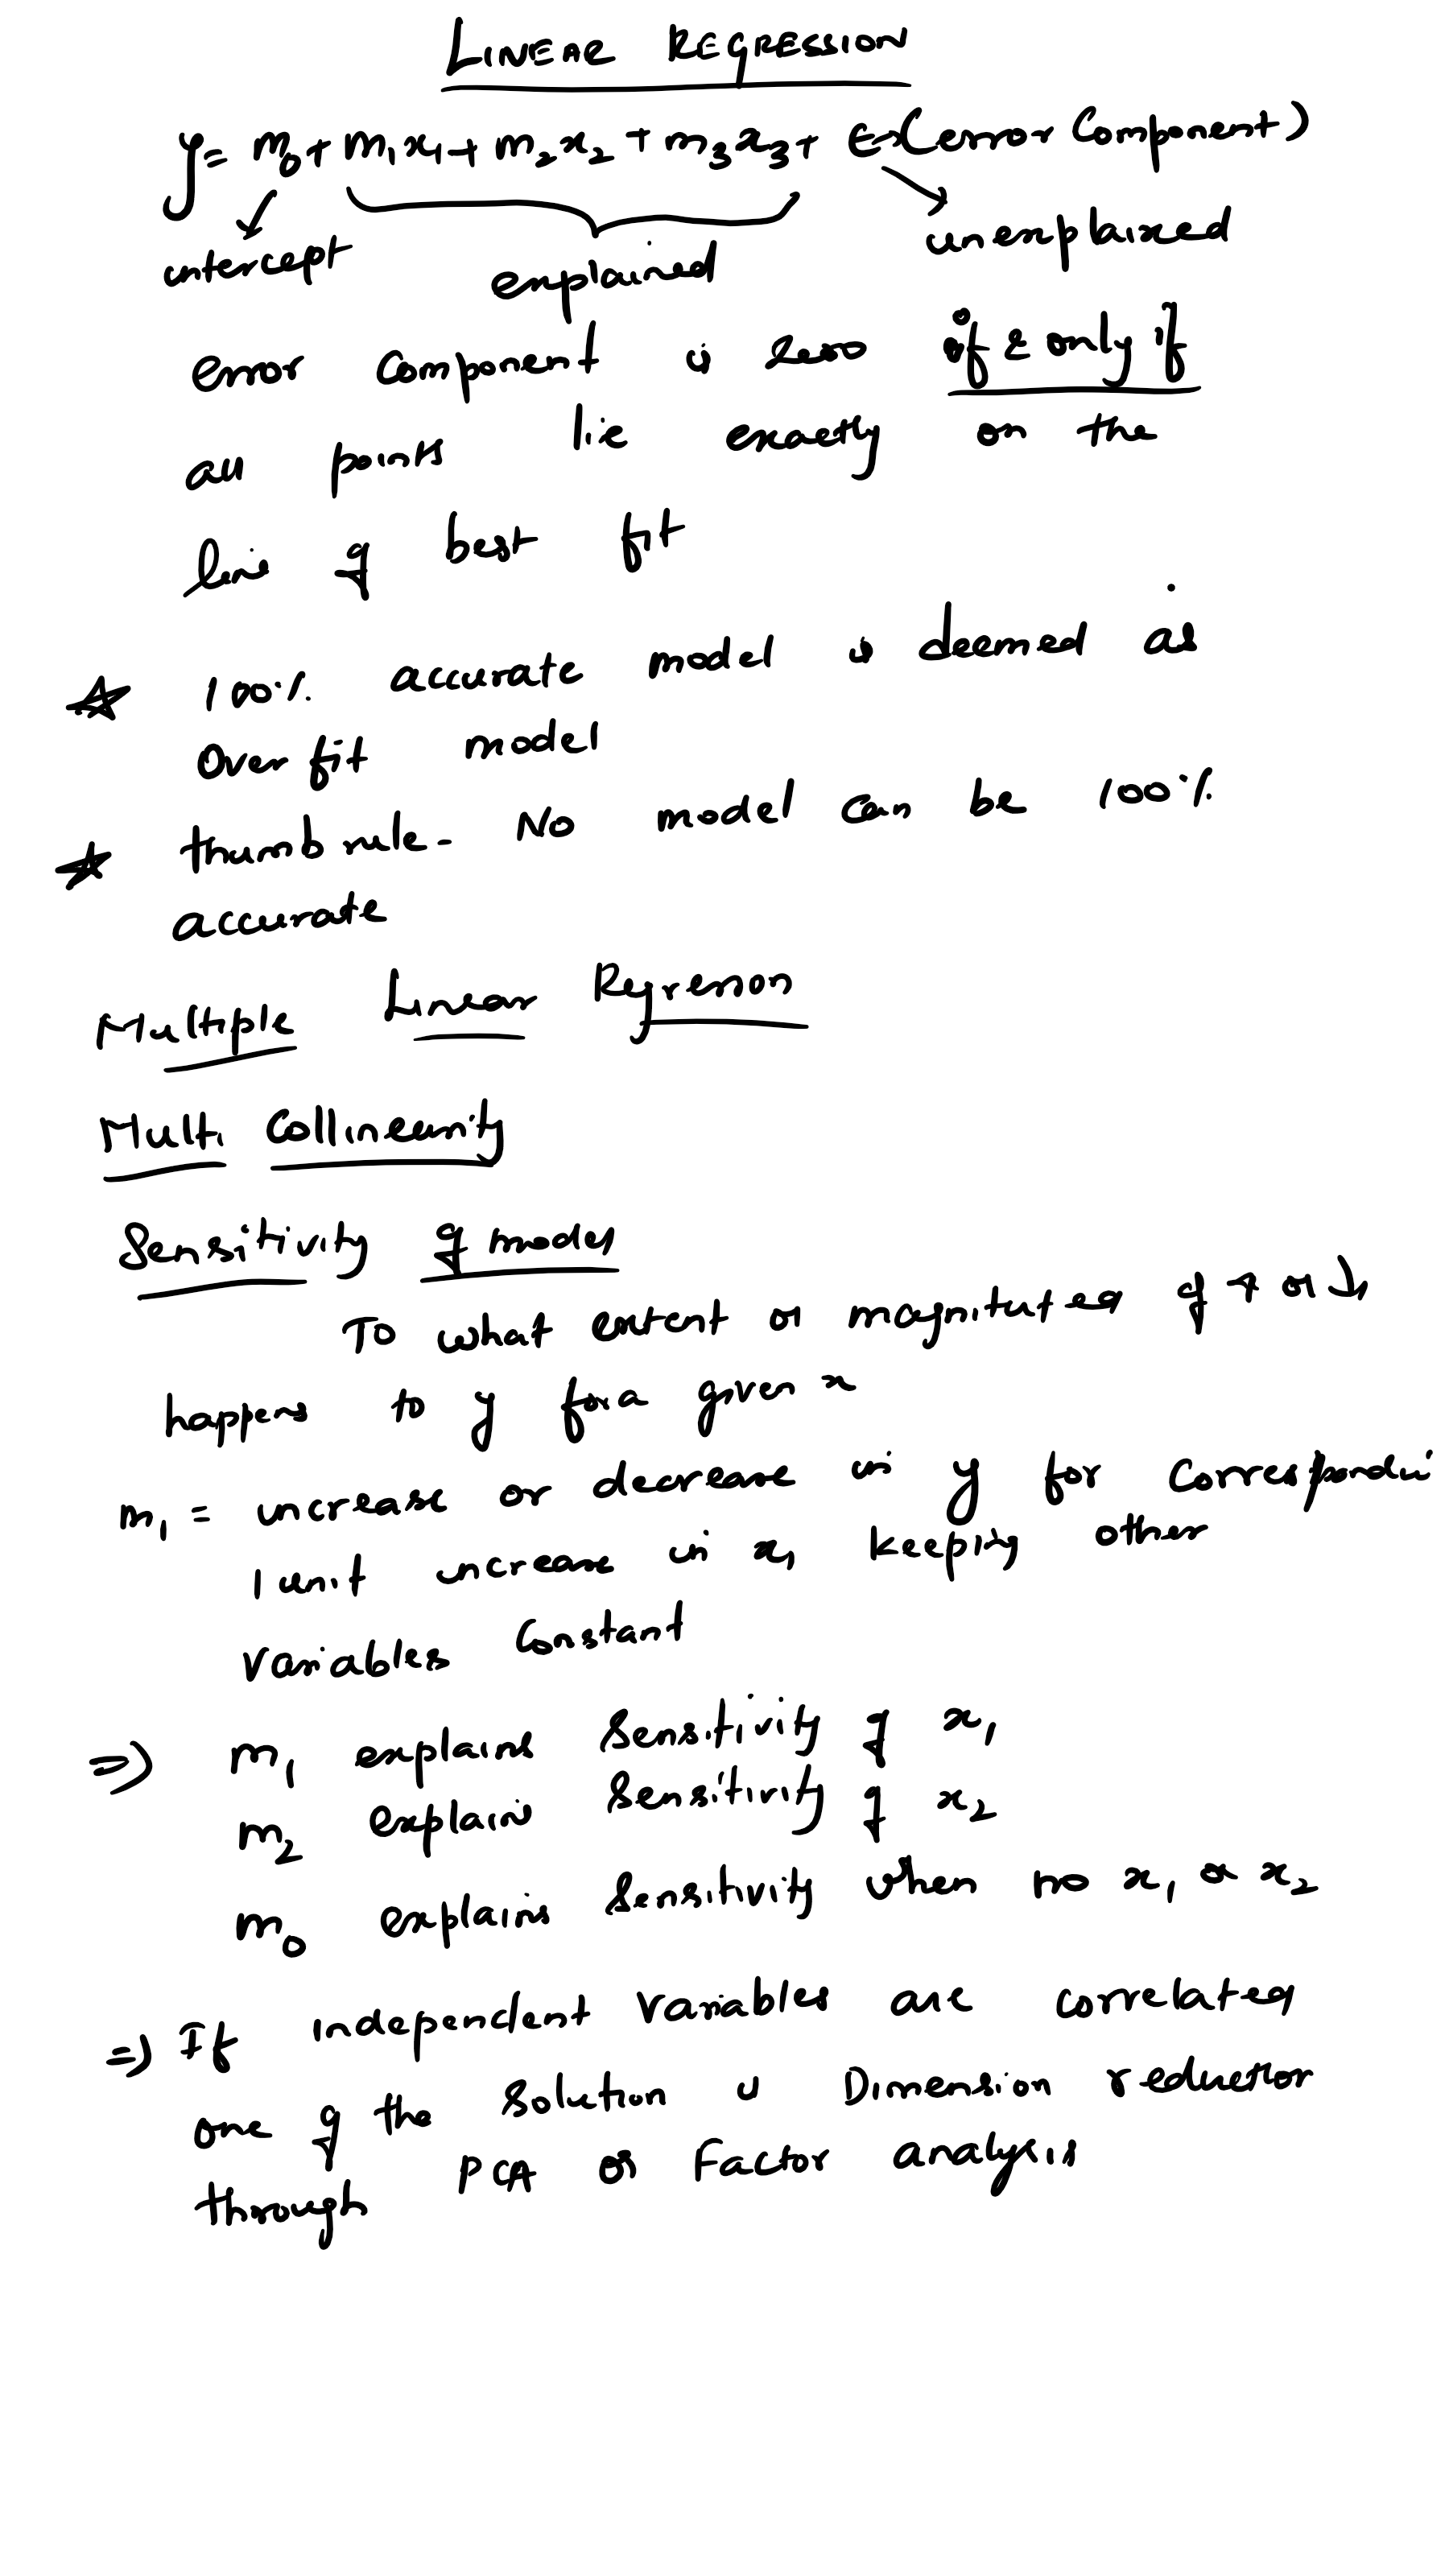 LINEAR REGRESSION
y = m₀ + m₁x₁ + m₂x₂ + m₃x₃ + ε → (error Component)
intercept explained unexplained
error component is zero if & only if
all points lie exactly on the
line of best fit
☆ 100% accurate model is deemed as
Over fit model
☆ thumb rule - No model can be 100%
accurate
Multiple Linear Regression
Multi Collinearity
Sensitivity of model
To what extent or magnitude of ↑ or ↓
happens to y for a given x
m₁ = increase or decrease in y for Correspondi
1 unit increase in x₁ keeping other
variables Constant
⇒ m₁ explains Sensitivity of x₁
m₂ explain Sensitivity of x₂
m₀ explains Sensitivity when no x₁ or x₂
⇒ If independent variables are correlated
one of the solution is Dimension reduction
through PCA or Factor analysis